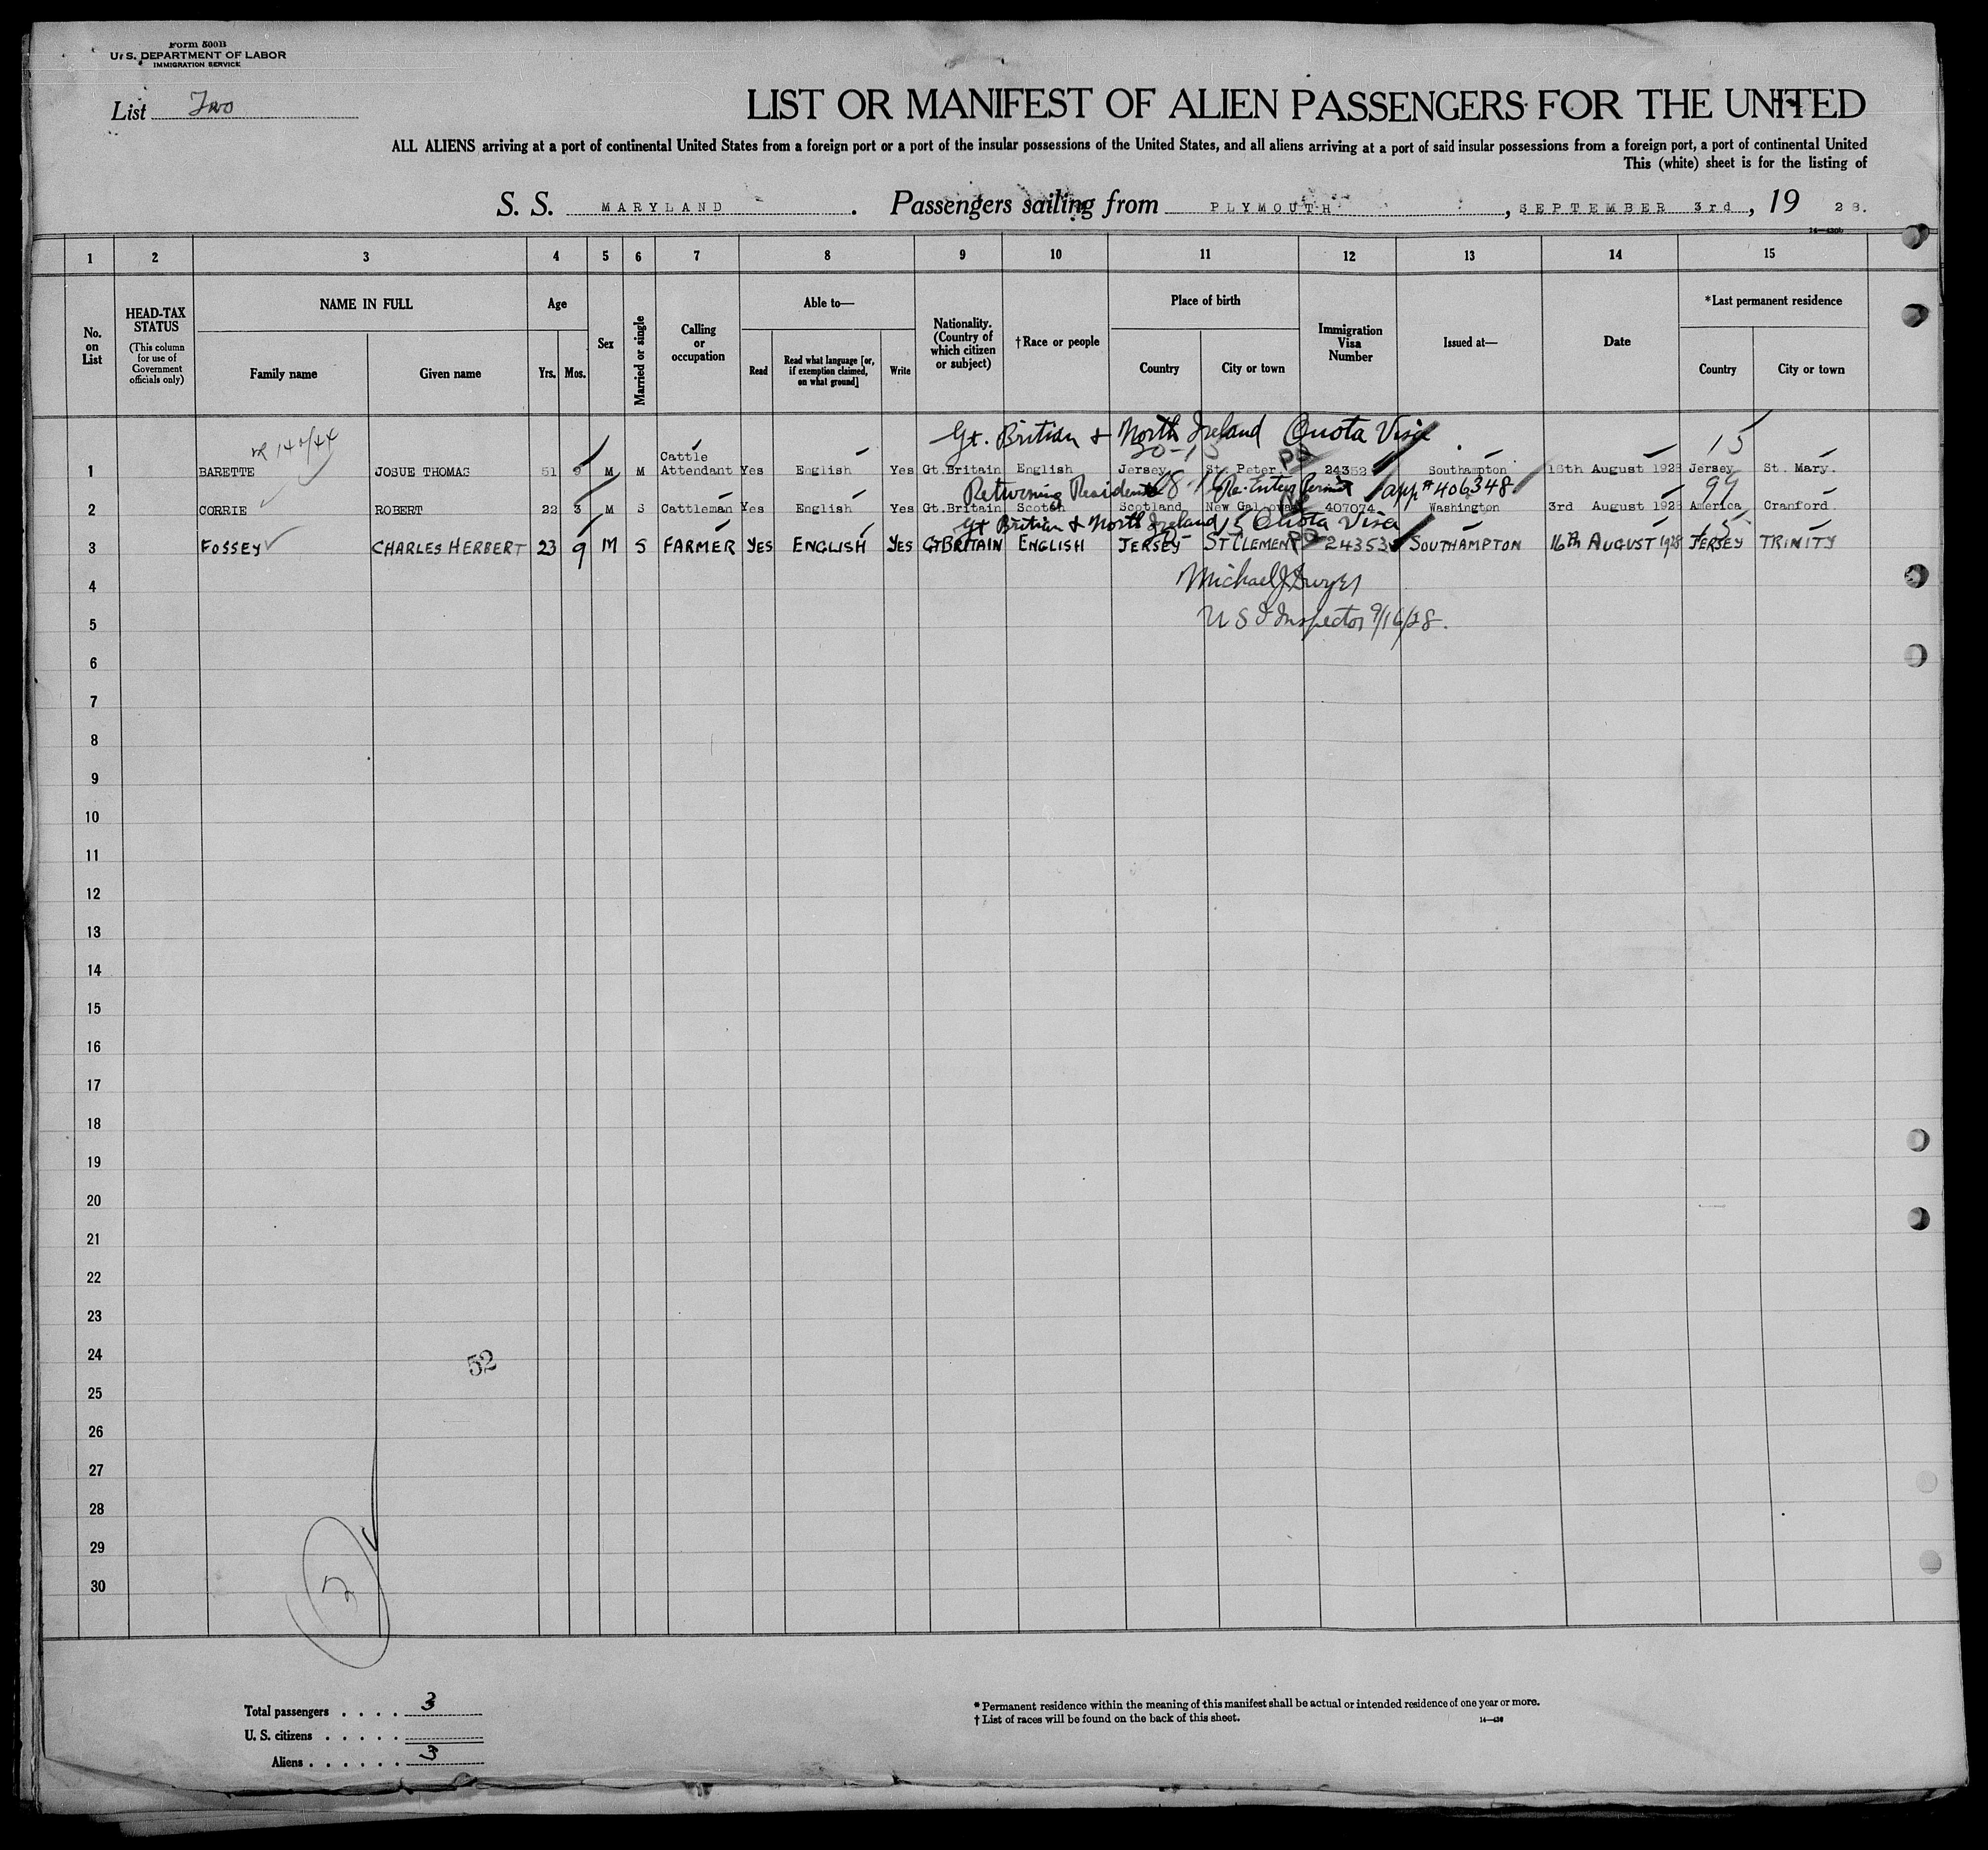 Form 500B
U.S. DEPARTMENT OF LABOR
IMMIGRATION SERVICE
List Two
LIST OR MANIFEST OF ALIEN PASSENGERS FOR THE UNITED
ALL ALIENS arriving at a port of continental United States from a foreign port or a port of the insular possessions of the United States, and all aliens arriving at a port of said insular possessions from a foreign port, a port of continental United
This (white) sheet is for the listing of
S. S. MARYLAND. Passengers sailing from PLYMOUTH, SEPTEMBER 3rd, 19 28.
1 2 3 4 5 6 7 8 9 10 11 12 13 14 15
No. on List
HEAD-TAX STATUS
(This column for use of Government officials only)
NAME IN FULL
Family name Given name
Age
Yrs. Mos.
Sex
Married or single
Calling or occupation
Able to—
Read
Read what language [or, if exemption claimed, on what ground]
Write
Nationality. (Country of which citizen or subject)
†Race or people
Place of birth
Country City or town
Immigration Visa Number
Issued at—
Date
*Last permanent residence
Country City or town
Gt. Britian & North Ireland Quota Visa
1 BARETTE JOSUE THOMAS 51 9 M M Cattle Attendant Yes English Yes Gt.Britain English Jersey St. Peter. 24352 Southampton 16th August 1928 Jersey St. Mary.
Returning Resident Re-Entry Permit app # 406348
2 CORRIE ROBERT 22 3 M S Cattleman Yes English Yes Gt.Britain Scotch Scotland New Galloway 407074 Washington 3rd August 1928 America Cranford.
Gt Britian & North Ireland Quota Visa
3 FOSSEY CHARLES HERBERT 23 9 M S FARMER YES ENGLISH YES GT BRITAIN ENGLISH JERSEY ST CLEMENT 24353 SOUTHAMPTON 16th AUGUST 1928 JERSEY TRINITY
4 Michael J Dwyer
5 U S I Inspector 9/16/28.
6
7
8
9
10
11
12
13
14
15
16
17
18
19
20
21
22
23
24
52
25
26
27
28
29
30
Total passengers . . . . 3
U. S. citizens . . . . .
Aliens . . . . . . 3
* Permanent residence within the meaning of this manifest shall be actual or intended residence of one year or more.
† List of races will be found on the back of this sheet.